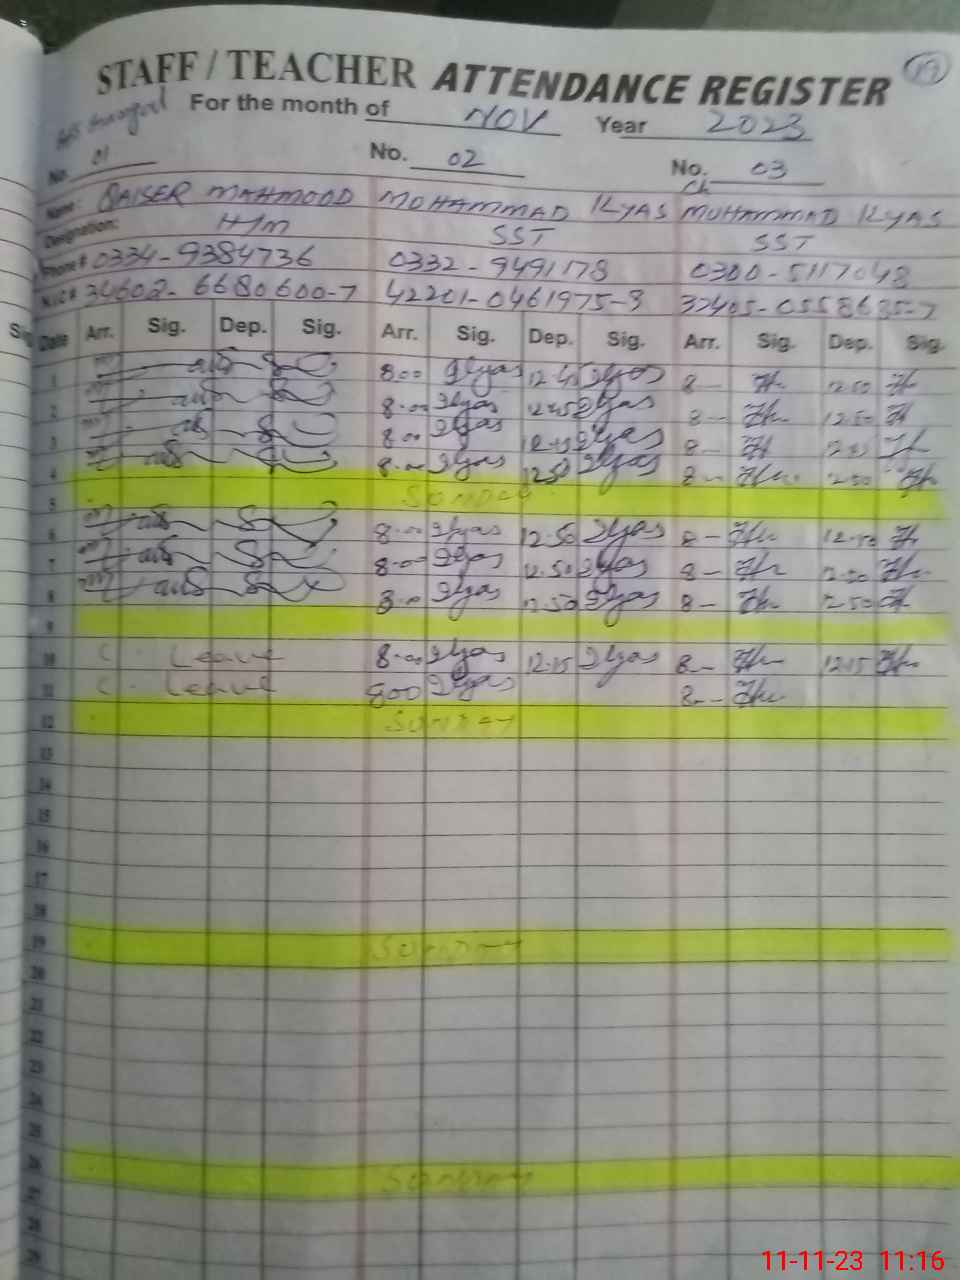 19
STAFF / TEACHER ATTENDANCE REGISTER
For the month of NOV Year 2023
No. 01 No. 02 No. 03
Name: QAISER MAHMOOD MOHAMMAD ILYAS Ch MUHAMMAD ILYAS
Designation: H/m SST SST
Phone # 0334-9384736 0332-9491178 0300-5117048
N.I.C # 34602-6680600-7 42201-0461975-3 32405-0558635-7
Date Arr. Sig. Dep. Sig. Arr. Sig. Dep. Sig. Arr. Sig. Dep. Sig.
1 8.00 Ilyas 12.45 Ilyas 8— 12.50
2 8.00 Ilyas 12.45 Ilyas 8— 12.50
3 8.00 Ilyas 12.45 Ilyas 8— 12.50
4 8.00 Ilyas 12.50 Ilyas 8— 12.50
5 SUNDAY
6 8.00 Ilyas 12.50 Ilyas 8— 12.50
7 8.00 Ilyas 12.50 Ilyas 8— 12.50
8 8.00 Ilyas 12.50 Ilyas 8— 12.50
9
10 C. Leave 8.00 Ilyas 12.15 Ilyas 8— 12.15
11 C. Leave 800 Ilyas 8—
12 SUNDAY
13
14
15
16
17
18
19 SUNDAY
20
21
22
23
24
25
26 SUNDAY
27
28
29
11-11-23 11:16